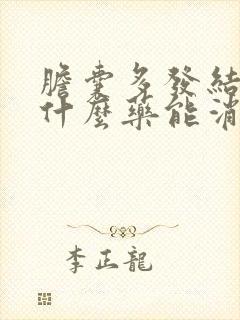 膽囊多發結
什麼藥能消
李正龍